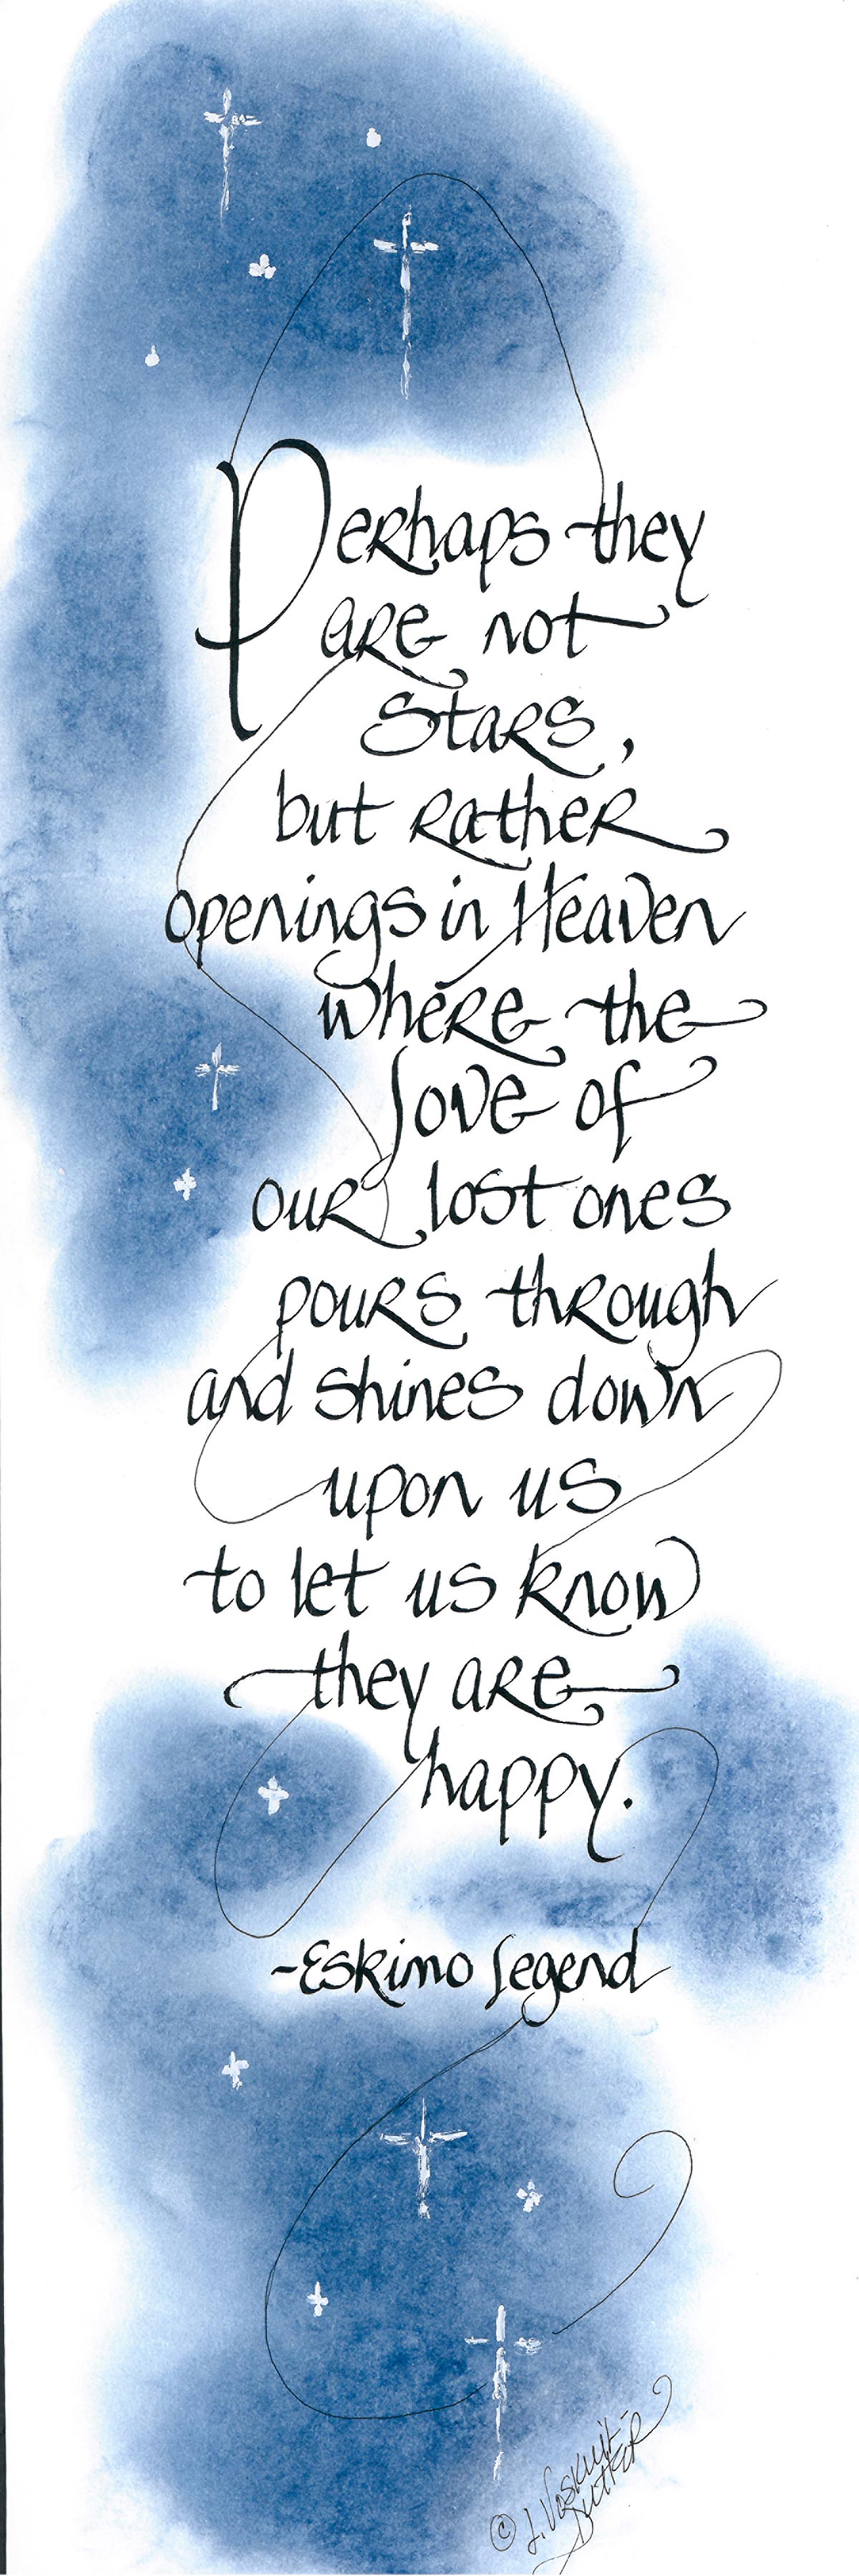 Perhaps they
are not
stars,
but rather
openings in Heaven
where the
love of
our lost ones
pours through
and shines down
upon us
to let us know
they are
happy.
-Eskimo Legend
© J. Voskuil-
Dutter